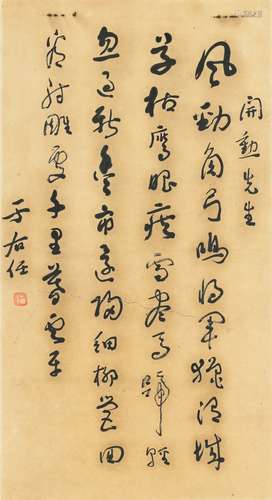 開勳先生
風勁角弓鳴將軍獵渭城
草枯鷹眼疾雪盡馬蹄輕
忽過新豐市還歸細柳營回
看射雕處千里暮雲平
于右任